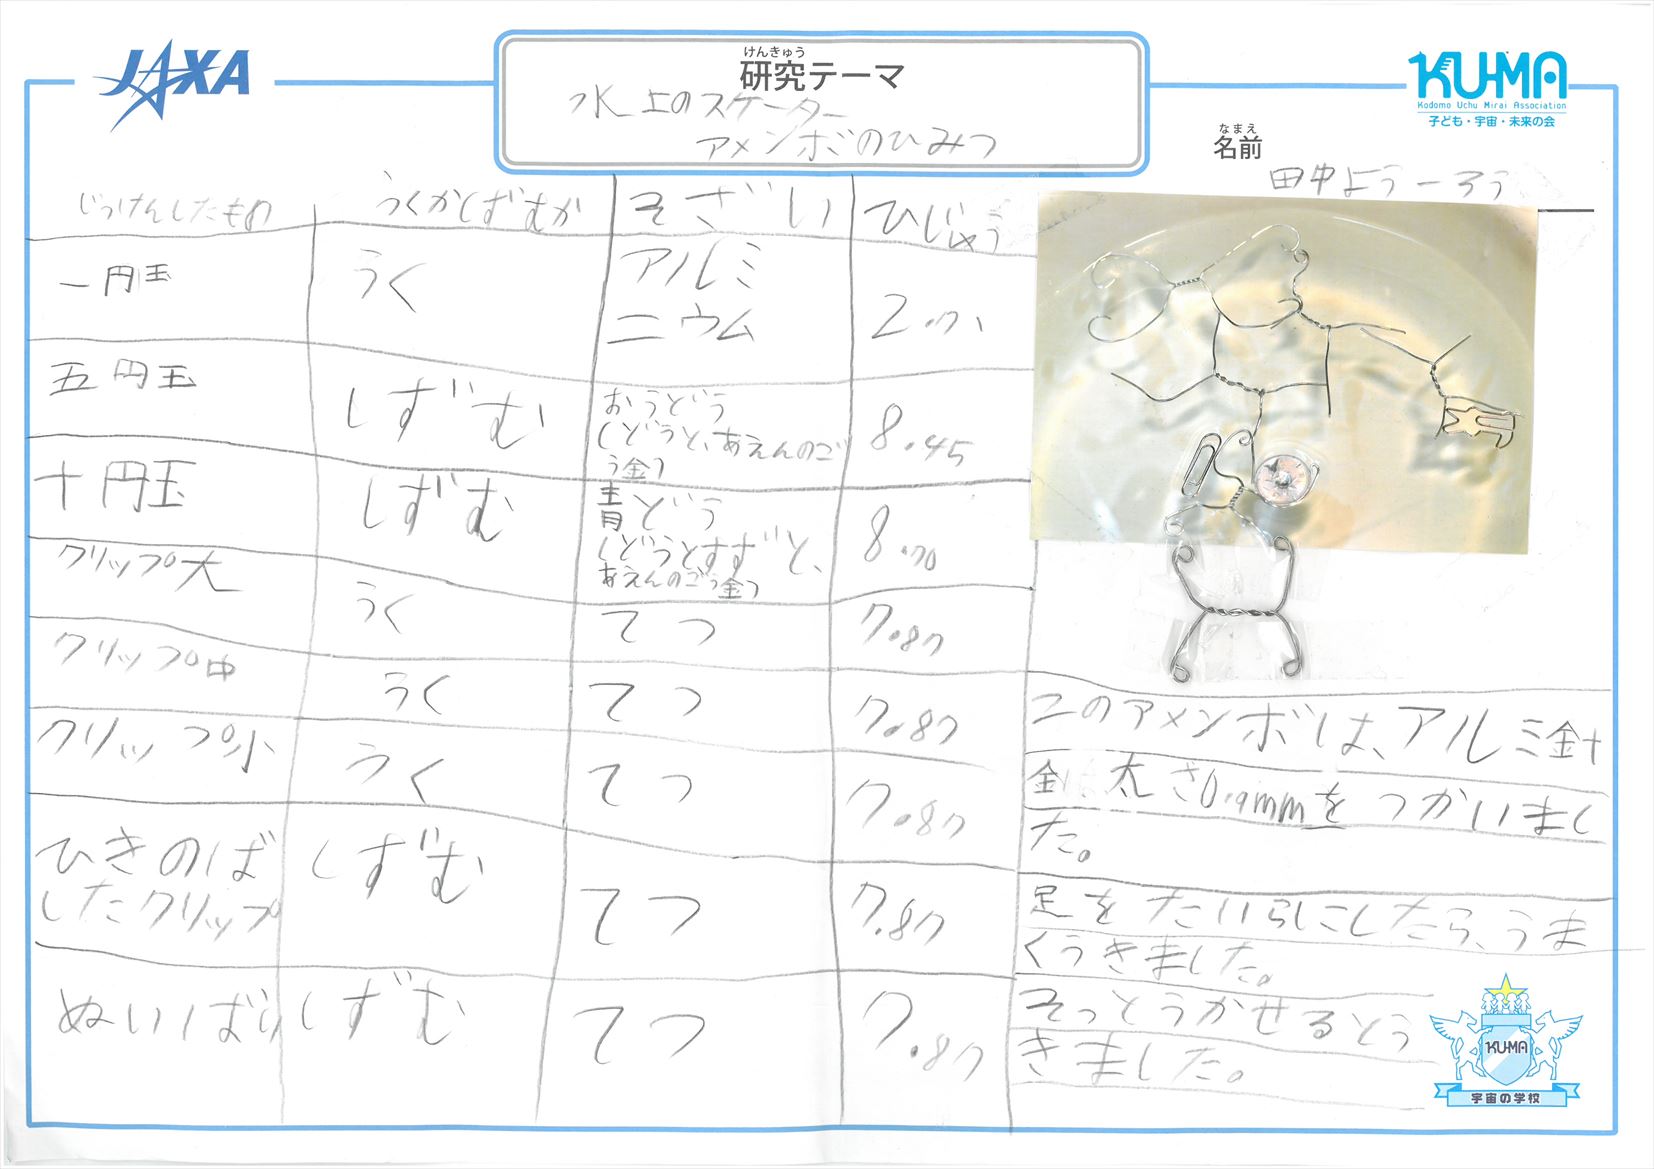 JAXA
けんきゅう
研究テーマ
水上のスケーター
アメンボのひみつ
KU-MA
Kodomo Uchu Mirai Association
子ども・宇宙・未来の会
なまえ
名前
田中ようーろう
じっけんしたもの うくかしずむか そざい ひじゅう
一円玉 うく アルミ
ニウム 2.71
五円玉 しずむ おうどう
(どうと、あえんのご
う金) 8.45
十円玉 しずむ 青どう
(どうとすずと、
あえんのごう金) 8.70
クリップ大 うく てつ 7.87
クリップ中 うく てつ 7.87
クリップ小 うく てつ 7.87
ひきのば
したクリップ しずむ てつ 7.87
ぬいばり しずむ てつ 7.87
このアメンボは、アルミ針
金 太さ0.9mmをつかいまし
た。
足をたいらにしたら、うま
くうきました。
そっとうかせるとう
きました。
KU-MA
宇宙の学校